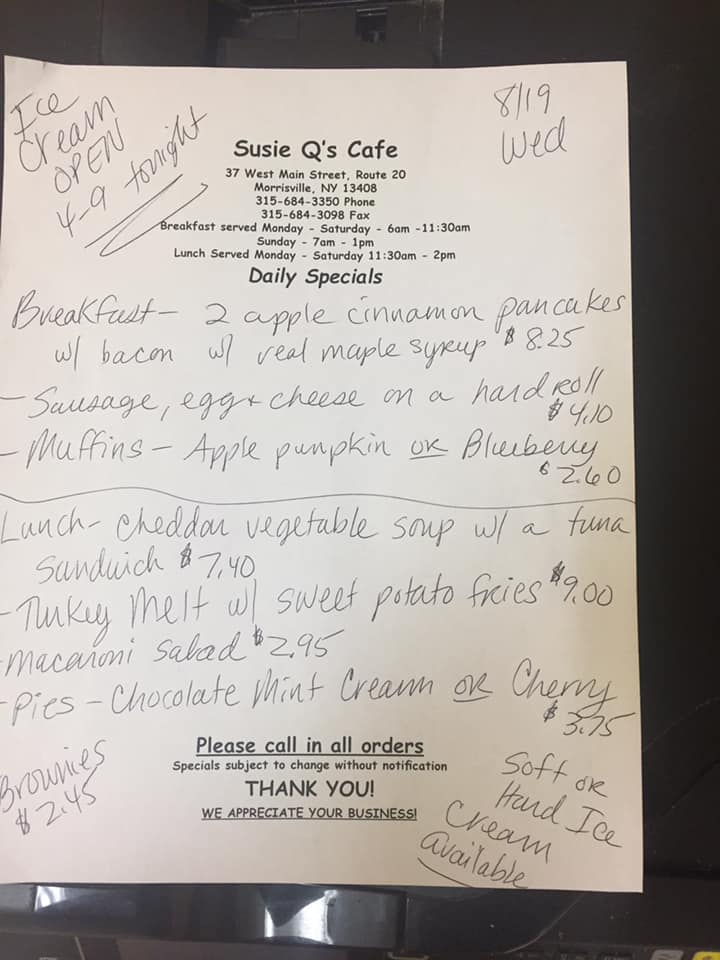 Ice
Cream
OPEN
4-9 tonight
8/19
Wed
Susie Q's Cafe
37 West Main Street, Route 20
Morrisville, NY 13408
315-684-3350 Phone
315-684-3098 Fax
Breakfast served Monday - Saturday - 6am -11:30am
Sunday - 7am - 1pm
Lunch Served Monday - Saturday 11:30am - 2pm
Daily Specials
Breakfast- 2 apple cinnamon pancakes
w/ bacon w/ real maple syrup $8.25
- Sausage, egg + cheese on a hard roll
$4.10
- Muffins - Apple pumpkin or Blueberry
$2.60
Lunch- cheddar vegetable soup w/ a tuna
sandwich $7.40
- Turkey Melt w/ sweet potato fries $9.00
-Macaroni salad $2.95
- Pies - Chocolate Mint Cream OR Cherry
$3.75
Please call in all orders
Specials subject to change without notification
THANK YOU!
WE APPRECIATE YOUR BUSINESS!
Brownies
$2.45
Soft OR
Hard Ice
Cream
available